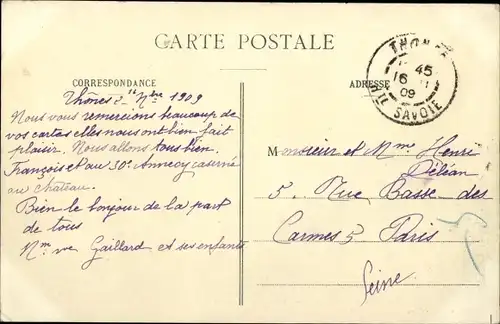 CARTE POSTALE
CORRESPONDANCE
ADRESSE
THONES
45
16
09
HTE SAVOIE
Thônes 16 Nbre 1909
Nous vous remercions beaucoup de
vos cartes elles nous ont bien fait
plaisir. Nous allons tous bien.
François et au 30e Annecy caserné
au château.
Bien le bonjour de la part
de tous
Mme vve Gaillard et ses enfants
Monsieur et Mme Henri
Déléan
5. Rue Basse-des
Carmes 5 Paris
Seine.